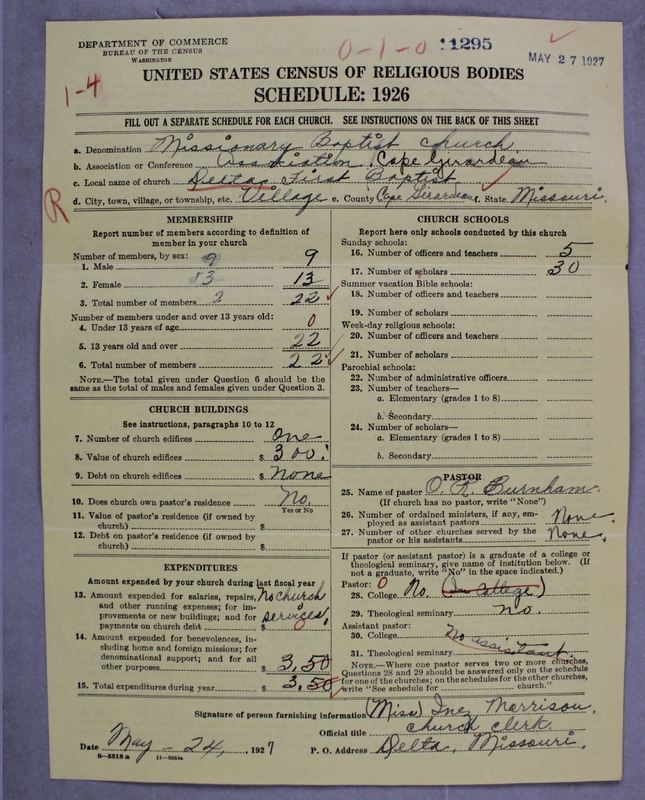 DEPARTMENT OF COMMERCE
BUREAU OF THE CENSUS
WASHINGTON
0-1-0
11295
MAY 27 1927
1-4
UNITED STATES CENSUS OF RELIGIOUS BODIES
SCHEDULE: 1926
FILL OUT A SEPARATE SCHEDULE FOR EACH CHURCH. SEE INSTRUCTIONS ON THE BACK OF THIS SHEET
a. Denomination Missionary Baptist church
b. Association or Conference Association Cape Girardeau
c. Local name of church Deltas First Baptist
R
d. City, town, village, or township, etc. Village e. County Cape Girardeau f. State Missouri.
MEMBERSHIP
Report number of members according to definition of
member in your church
Number of members, by sex:
1. Male 9 9
2. Female 13
3. Total number of members 22
Number of members under and over 13 years old:
4. Under 13 years of age 0
5. 13 years old and over 22
6. Total number of members 22
NOTE.—The total given under Question 6 should be the
same as the total of males and females given under Question 3.
CHURCH BUILDINGS
See instructions, paragraphs 10 to 12
7. Number of church edifices One
8. Value of church edifices $ 300.
9. Debt on church edifices $ None
10. Does church own pastor's residence No.
Yes or No
11. Value of pastor's residence (if owned by
church) $
12. Debt on pastor's residence (if owned by
church) $
EXPENDITURES
Amount expended by your church during last fiscal year
13. Amount expended for salaries, repairs, No church
and other running expenses; for im- services.
provements or new buildings; and for
payments on church debt $ 0
14. Amount expended for benevolences, in-
cluding home and foreign missions; for
denominational support; and for all
other purposes $ 3,50
15. Total expenditures during year $ 3,50
CHURCH SCHOOLS
Report here only schools conducted by this church
Sunday schools:
16. Number of officers and teachers 5
17. Number of scholars 30
Summer vacation Bible schools:
18. Number of officers and teachers
19. Number of scholars
Week-day religious schools:
20. Number of officers and teachers
21. Number of scholars
Parochial schools:
22. Number of administrative officers
23. Number of teachers—
a. Elementary (grades 1 to 8)
b. Secondary
24. Number of scholars—
a. Elementary (grades 1 to 8)
b. Secondary
PASTOR
25. Name of pastor O. R. Burnham.
(If church has no pastor, write "None")
26. Number of ordained ministers, if any, em-
ployed as assistant pastors None.
27. Number of other churches served by the
pastor or his assistants None.
If pastor (or assistant pastor) is a graduate of a college or
theological seminary, give name of institution below. (If
not a graduate, write "No" in the space indicated.)
Pastor: 0
28. College No. (In College)
29. Theological seminary no.
Assistant pastor:
30. College No assistant.
31. Theological seminary
NOTE.—Where one pastor serves two or more churches,
Questions 28 and 29 should be answered only on the schedule
for one of the churches; on the schedules for the other churches,
write "See schedule for church."
Signature of person furnishing information (Miss) Inez Morrison.
Official title church clerk.
Date May - 24, 1927 P. O. Address Delta, Missouri.